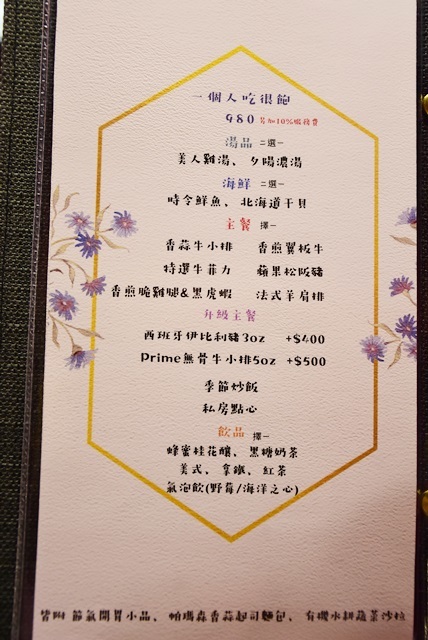 一個人吃很飽
980 另加10%服務費
湯品 二選一
美人雞湯、夕陽濃湯
海鮮 二選一
時令鮮魚、北海道干貝
主餐 擇一
香蒜牛小排 香煎翼板牛
特選牛菲力 蘋果松阪豬
香煎脆雞腿&黑虎蝦 法式羊肩排
升級主餐
西班牙伊比利豬3oz +$400
Prime無骨牛小排5oz +$500
季節炒飯
私房點心
飲品 擇一
蜂蜜桂花釀、黑糖奶茶
美式、拿鐵、紅茶
氣泡飲(野莓/海洋之心)
皆附 節氣開胃小品、帕瑪森香蒜起司麵包、有機水耕蔬菜沙拉